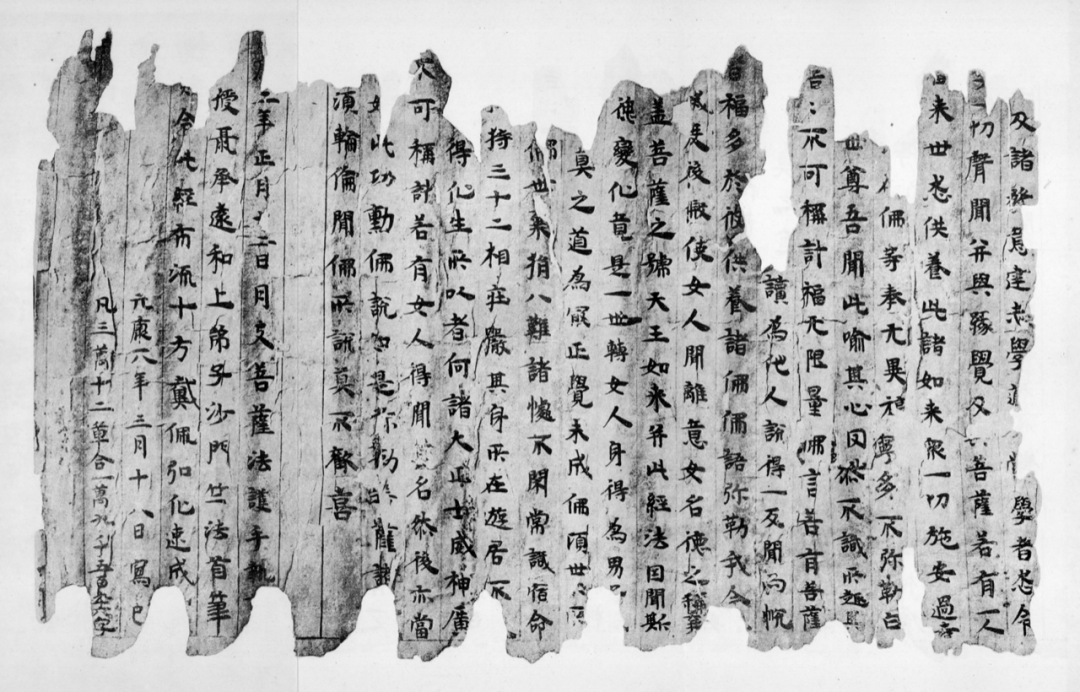 及諸志學學者悉令
一切聲聞并與緣覺及菩薩若有一人
來世悉供養此諸如来眾一切施安過
佛等奉无異寧多不弥勒白
世尊吾聞此喻其心回然不識所趣
言不可稱計福无限量佛言善有菩薩
讀為他人說得一反聞
福多於彼供養諸佛佛語弥勒我今
後故使女人聞離意女名德之稱
蓋菩薩之號天王如来并此經法因聞斯
德變化竟是一世轉女人身得為男
真之道為最正覺未成佛頃世
佛世来捐八難諸惱不閑常識宿命
持三十二相莊嚴其身所在遊居不
得化生所以者何諸大正士威神廣
不可稱計若有女人得聞其名然後亦當
如此功勳佛說如是弥勒菩薩
須輪倫聞佛所說莫不歡喜
二年正月十二日月支菩薩法護手執
授聶承遠和上弟子沙門竺法首筆
令此經布流十方戴佩弘化速成
元康六年三月十八日寫已
凡三萬十二章合一萬九千五百九十六字